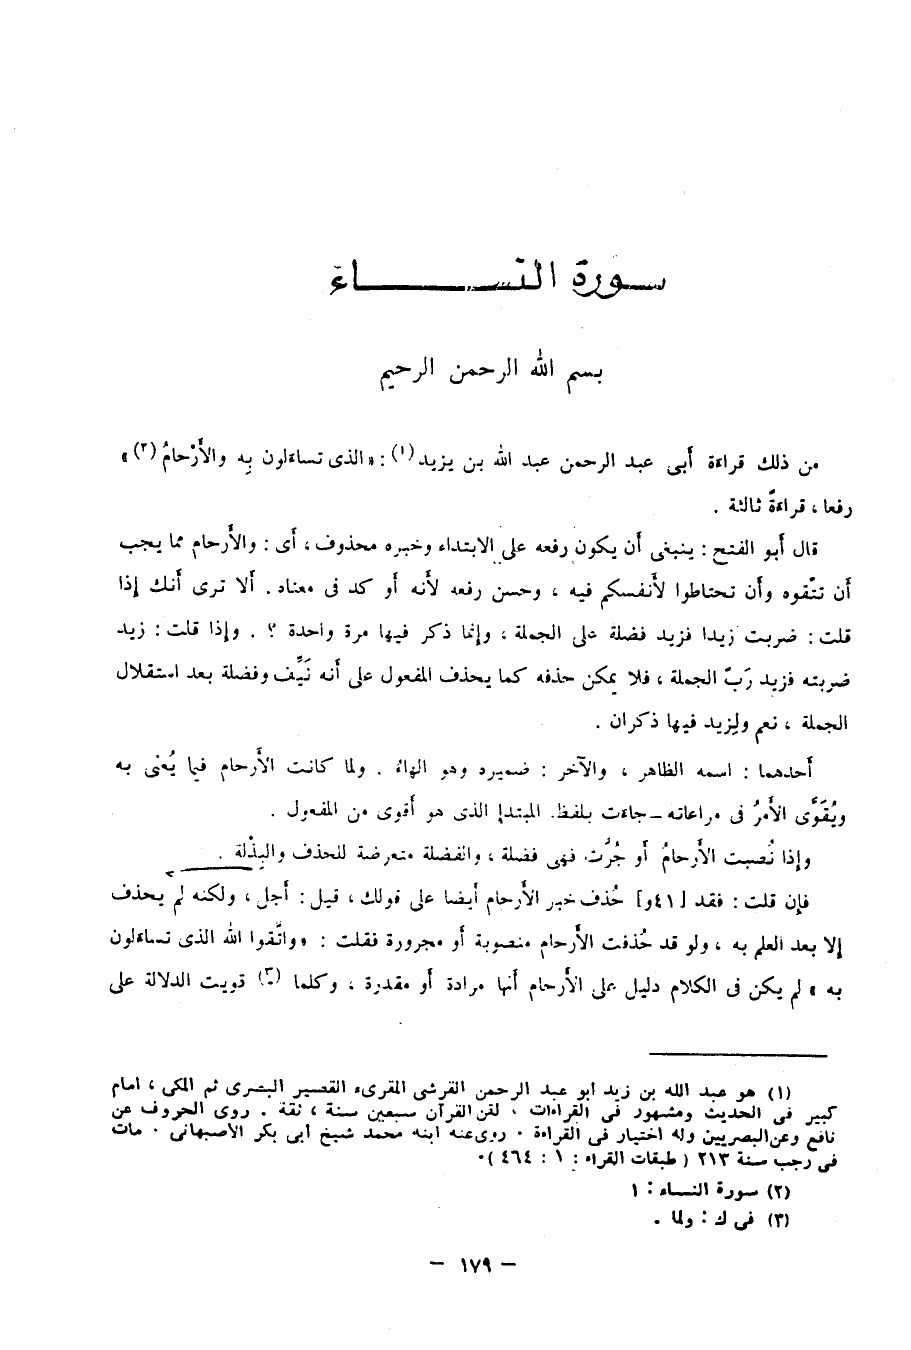 سورة النســـــاء
بسم الله الرحمن الرحيم
من ذلك قراءة أبى عبد الرحمن عبد الله بن يزيد(١) : «الذى تساءلون بِه والأَرْحامُ(٢)»
رفعا ، قراءةً ثالثة .
قال أبو الفتح : ينبغى أن يكون رفعه على الابتداء وخبره محذوف ، أى : والأرحام مما يجب
أن تتّقوه وأن تحتاطوا لأنفسكم فيه ، وحسن رفعه لأنه أو كد فى معناه . ألا ترى أنك إذا
قلت : ضربت زيدا فزيد فضلة على الجملة ، وإنما ذكر فيها مرة واحدة ؟ . وإذا قلت : زيد
ضربته فزيد رَبّ الجملة ، فلا يمكن حذفه كما يحذف المفعول على أنه نَيِّف وفضلة بعد استقلال
الجملة ، نعم ولِزيد فيها ذكران .
أحدهما : اسمه الظاهر ، والآخر : ضميره وهو الهاء . ولما كانت الأرحام فيما يُعْنى به
ويُقوَّى الأمرُ فى مراعاته ــ جاءت بلفظ المبتدإ الذى هو أقوى من المفعول .
وإذا نُصبت الأرحامُ أو جُرَّت فهى فضلة ، والفضلة متعرضة للحذف والبِذْلة .
فإن قلت : فقد [٤١و] حُذف خبر الأرحام أيضا على قولك ، قيل : أجل ، ولكنه لم يحذف
إلا بعد العلم به ، ولو قد حُذفت الأرحام منصوبة أو مجرورة فقلت : «واتَّقوا الله الذى تساءلون
به » لم يكن فى الكلام دليل على الأرحام أنها مرادة أو مقدرة ، وكلما (٣) قويت الدلالة على
(١) هو عبد الله بن زيد ابو عبد الرحمن القرشى المقرىء القصير البصرى ثم المكى ، امام
كبير فى الحديث ومشهور فى القراءات ، لقن القرآن سبعين سنة ، ثقة . روى الحروف عن
نافع وعن البصريين وله اختيار فى القراءة . روى عنه ابنه محمد شيخ ابى بكر الأصبهانى . مات
فى رجب سنة ٢١٣ ( طبقات القراء : ١ : ٤٦٤ ) .
(٢) سورة النساء : ١
(٣) فى ك : ولما .
– ١٧٩ –